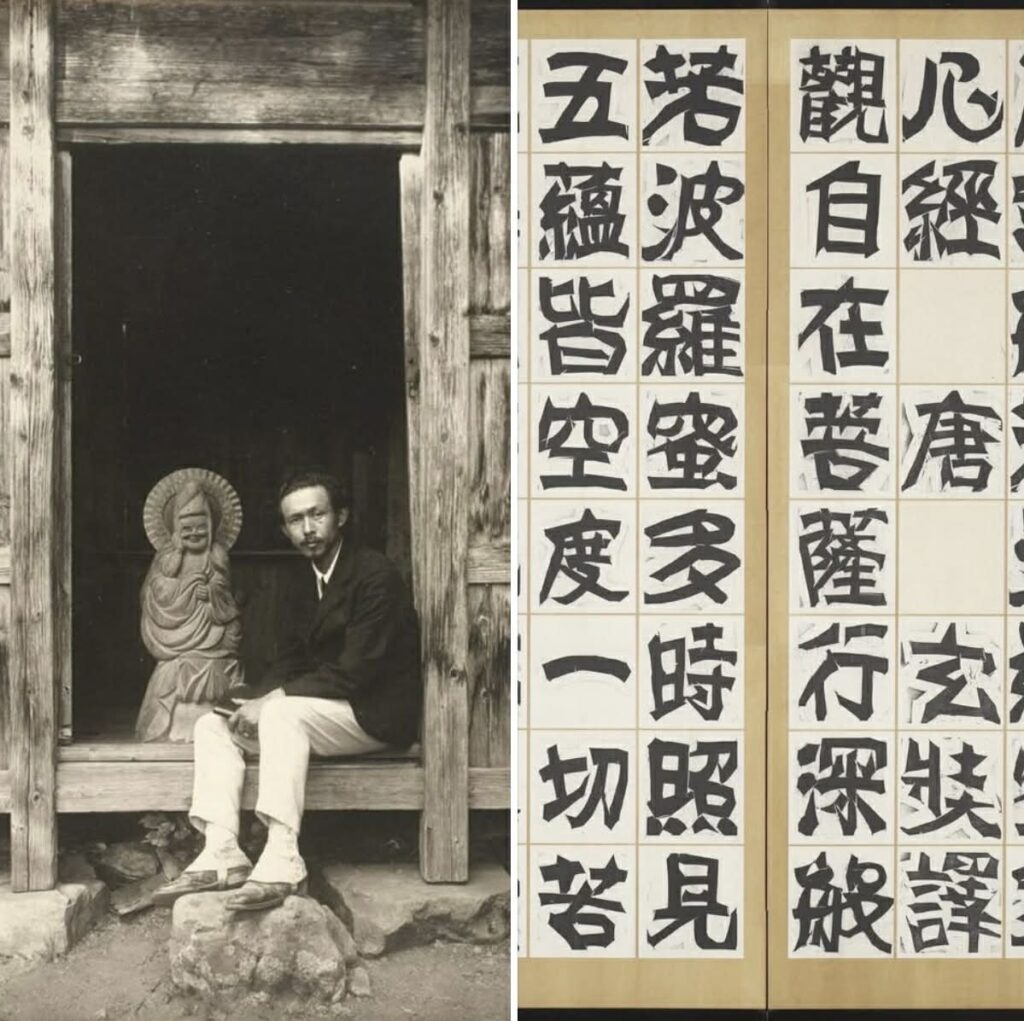 心經 唐 玄奘譯
觀自在菩薩行深般
若波羅蜜多時照見
五蘊皆空度一切苦